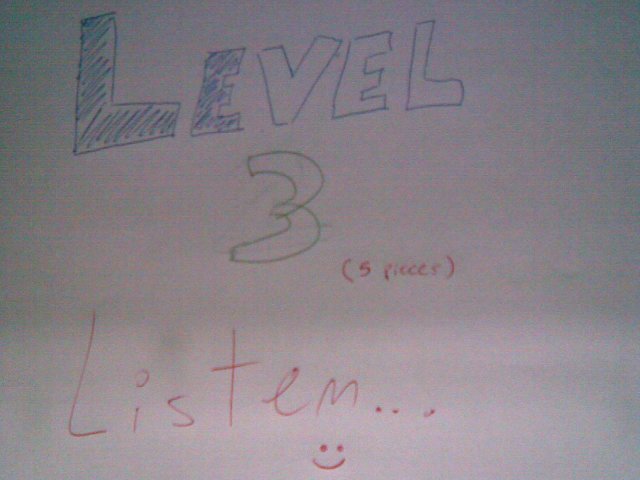 LEVEL
3
(5 pieces)
Listen...